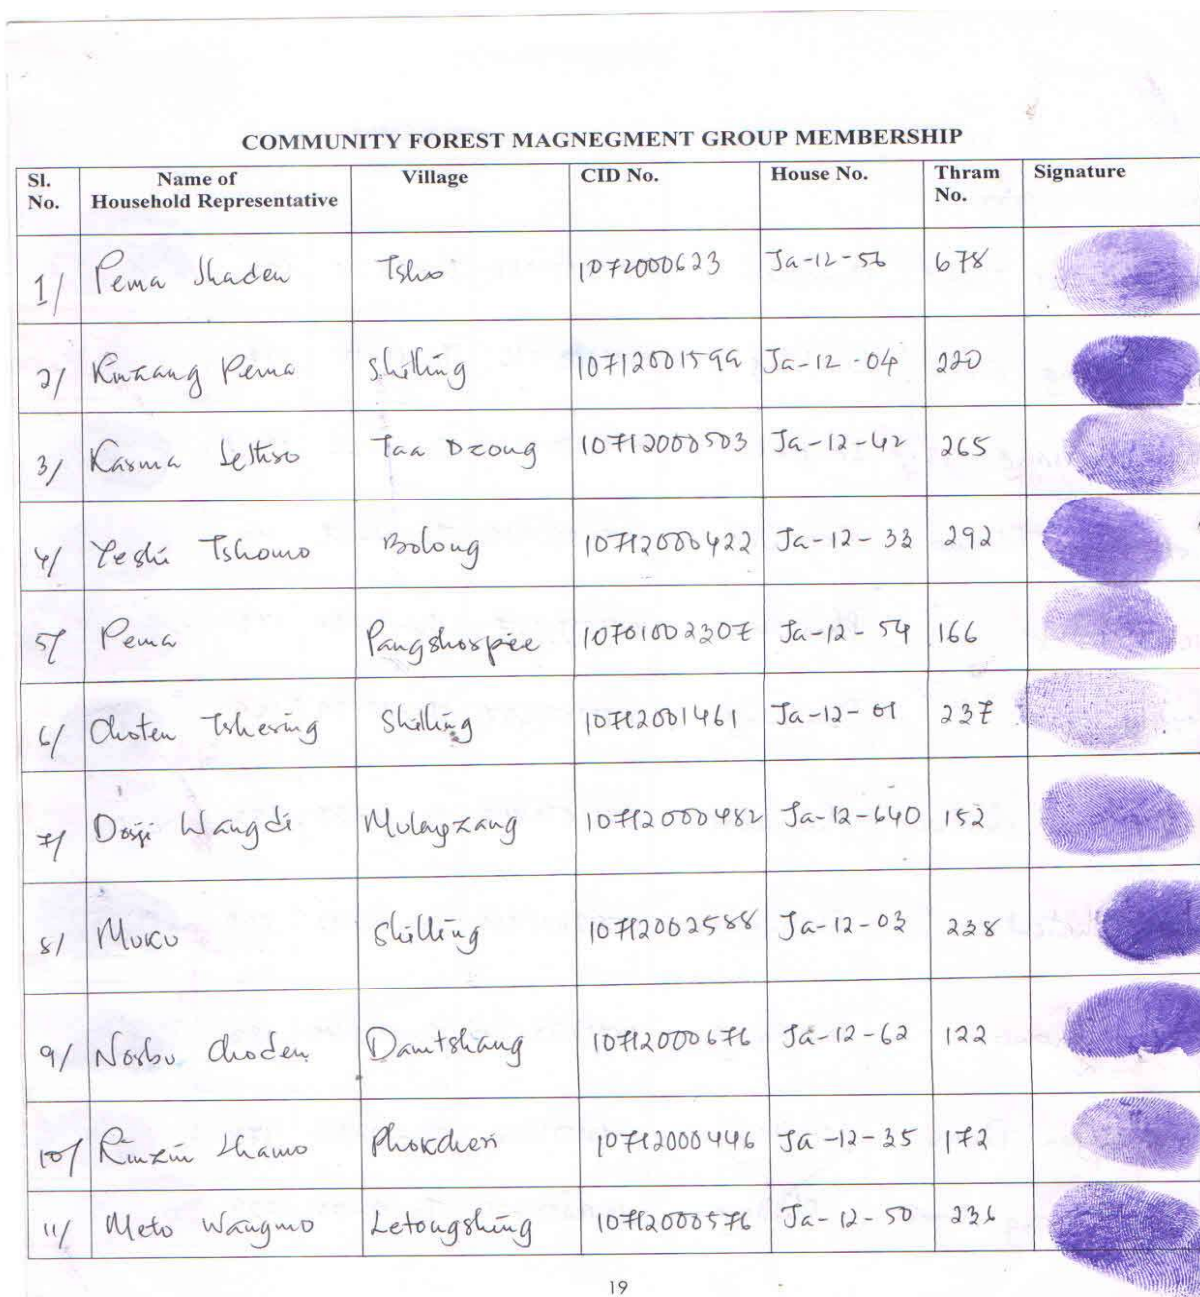 COMMUNITY FOREST MAGNEGMENT GROUP MEMBERSHIP
Sl. No. Name of Household Representative Village CID No. House No. Thram No. Signature
1/ Pema Lhaden Tsho 1072000623 Ja-12-56 678
2/ Kinzang Pema Shilling 10712001599 Ja-12-04 220
3/ Karma Lethro Taa Dzong 10712000503 Ja-12-42 265
4/ Yeshi Tshomo Bolong 10712000422 Ja-12-33 292
5/ Pema Pangshorpiee 10701002307 Ja-12-54 166
6/ Choten Tshering Shilling 10712001461 Ja-12-01 237
7/ Dorji Wangdi 10712000482 Ja-12-640 152
8/ Muku Shilling 10712002588 Ja-12-03 238
9/ Norbu Choden Damtshang 10712000676 Ja-12-62 122
10/ Rinzin Lhamo Phokcheri 10712000446 Ja-12-35 172
11/ Meto Wangmo Letongshing 10712000576 Ja-12-50 236
19